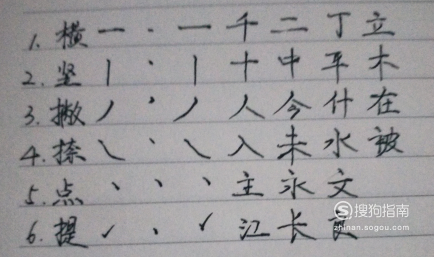 1. 横 一 、 一 千 二 丁 立
2. 坚 丨 、 丨 十 中 平 木
3. 撇 丿 、 丿 人 今 什 在
4. 捺 ㇏ 、 ㇏ 入 未 水 被
5. 点 、 、 、 主 永 文
6. 提 ㇀ 、 ㇀ 江 长
搜狗指南
zhinan.sogou.com